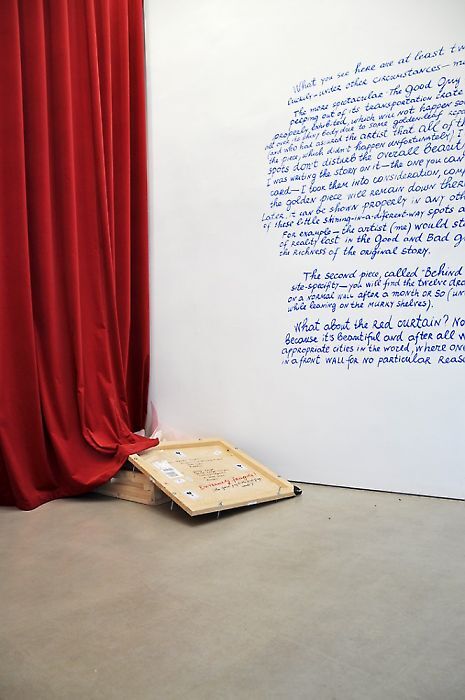 What you see here are at least tw
under other circumstances—
The more spectacular The Good Guy
peeping out of its transportation crate
properly exhibited, which will not happen so
its shiny body due to some golden-leaf repa
(and who had assured the artist that all of th
the piece, which didn't happen unfortunately) I
spots don't disturb the overall beauty
I was writing the story on it—the one you can
card—I took them into consideration, com
the golden piece will remain down there
Later, it can be shown properly in any oth
of these little shining-in-a-different-way spots a
For example—the artist (me) would sta
of reality lost in the Good and Bad G
the richness of the original story.
The second piece, called "Behind
site-specific—you will find the twelve dra
on a normal wall after a month or so (un
while leaning on the murky shelves).
What about the red curtain? No
Because it's beautiful and after all w
appropriate cities in the world, where one
in a front wall for no particular reaso
Extremely fragile!